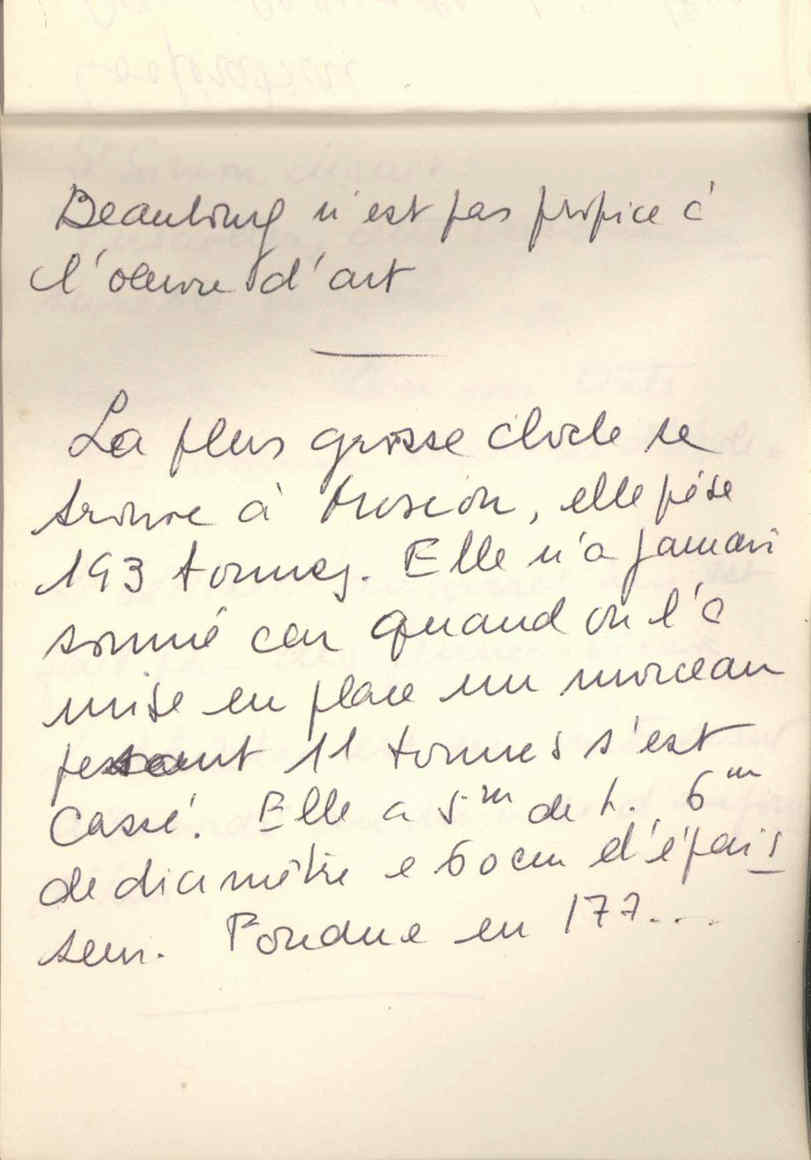 Beaubourg n'est pas propice à
l'oeuvre d'art
La plus grosse cloche se
trouve à Moscou, elle pèse
193 tonnes. Elle n'a jamais
sonné car quand on l'a
mise en place un morceau
pesant 11 tonnes s'est
cassé. Elle a 5m de h. 6m
de diamètre e 60cm d'épais
seur. Fondue en 177...